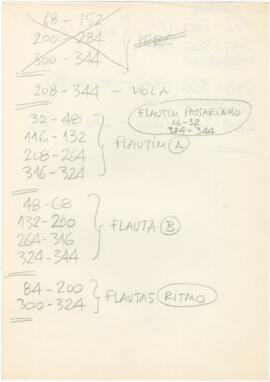 68 - 152
200 - 284
300 - 344
PERC.
208 - 344 - VIOLA
FLAUTIM PASSARINHO
16-32
324-344
32 - 48
116 - 132
208 - 264
316 - 324
FLAUTIM A
48 - 68
132 - 200
264 - 316
324 - 344
FLAUTA B
84 - 200
300 - 324
FLAUTAS RITMO